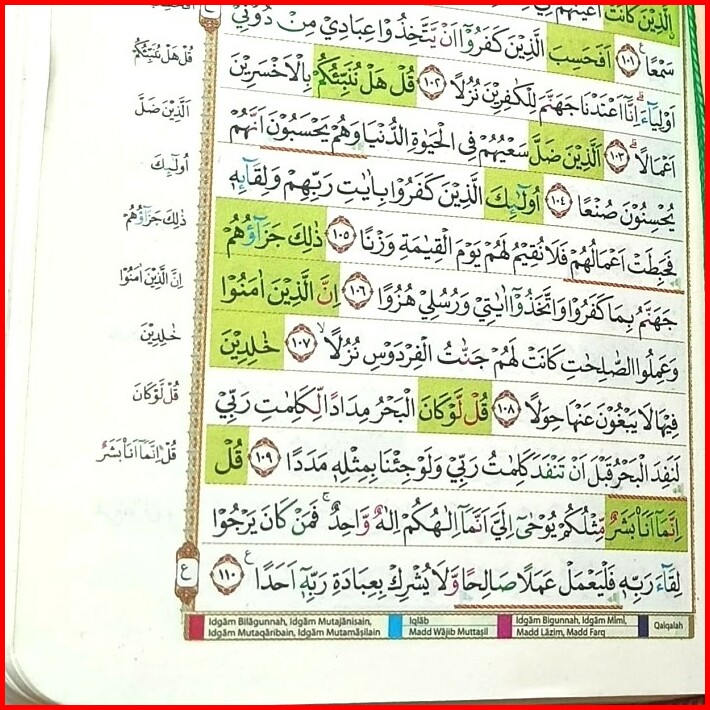 الَّذِيْنَ كَانَتْ اَعْيُنُهُمْ فِيْ
سَمْعًا ࣖ ١٠١ اَفَحَسِبَ الَّذِيْنَ كَفَرُوْٓا اَنْ يَّتَّخِذُوْا عِبَادِيْ مِنْ دُوْنِيْٓ
اَوْلِيَاۤءَ ۗاِنَّآ اَعْتَدْنَا جَهَنَّمَ لِلْكٰفِرِيْنَ نُزُلًا ١٠٢ قُلْ هَلْ نُنَبِّئُكُمْ بِالْاَخْسَرِيْنَ
اَعْمَالًا ۗ ١٠٣ اَلَّذِيْنَ ضَلَّ سَعْيُهُمْ فِى الْحَيٰوةِ الدُّنْيَا وَهُمْ يَحْسَبُوْنَ اَنَّهُمْ
يُحْسِنُوْنَ صُنْعًا ١٠٤ اُولٰۤىِٕكَ الَّذِيْنَ كَفَرُوْا بِاٰيٰتِ رَبِّهِمْ وَلِقَاۤىِٕهٖ
فَحَبِطَتْ اَعْمَالُهُمْ فَلَا نُقِيْمُ لَهُمْ يَوْمَ الْقِيٰمَةِ وَزْنًا ١٠٥ ذٰلِكَ جَزَاۤؤُهُمْ
جَهَنَّمُ بِمَا كَفَرُوْا وَاتَّخَذُوْٓا اٰيٰتِيْ وَرُسُلِيْ هُزُوًا ١٠٦ اِنَّ الَّذِيْنَ اٰمَنُوْا
وَعَمِلُوا الصّٰلِحٰتِ كَانَتْ لَهُمْ جَنّٰتُ الْفِرْدَوْسِ نُزُلًا ۙ ١٠٧ خٰلِدِيْنَ
فِيْهَا لَا يَبْغُوْنَ عَنْهَا حِوَلًا ١٠٨ قُلْ لَّوْ كَانَ الْبَحْرُ مِدَادًا لِّكَلِمٰتِ رَبِّيْ
لَنَفِدَ الْبَحْرُ قَبْلَ اَنْ تَنْفَدَ كَلِمٰتُ رَبِّيْ وَلَوْ جِئْنَا بِمِثْلِهٖ مَدَدًا ١٠٩ قُلْ
اِنَّمَآ اَنَا۠ بَشَرٌ مِّثْلُكُمْ يُوْحٰٓى اِلَيَّ اَنَّمَآ اِلٰهُكُمْ اِلٰهٌ وَّاحِدٌ ۚ فَمَنْ كَانَ يَرْجُوْا
لِقَاۤءَ رَبِّهٖ فَلْيَعْمَلْ عَمَلًا صَالِحًا وَّلَا يُشْرِكْ بِعِبَادَةِ رَبِّهٖٓ اَحَدًا ࣖ ١١٠
قُلْ هَلْ نُنَبِّئُكُمْ
اَلَّذِيْنَ ضَلَّ
اُولٰۤىِٕكَ
ذٰلِكَ جَزَاۤؤُهُمْ
اِنَّ الَّذِيْنَ اٰمَنُوْا
خٰلِدِيْنَ
قُلْ لَّوْ كَانَ
قُلْ اِنَّمَآ اَنَا۠ بَشَرٌ
ع
Idgām Bilāgunnah, Idgām Mutajānisain,
Idgām Mutaqāribain, Idgām Mutamāṡilain
Iqlāb
Madd Wājib Muttaṣil
Idgām Bigunnah, Idgām Mīmī,
Madd Lāzim, Madd Farq
Qalqalah